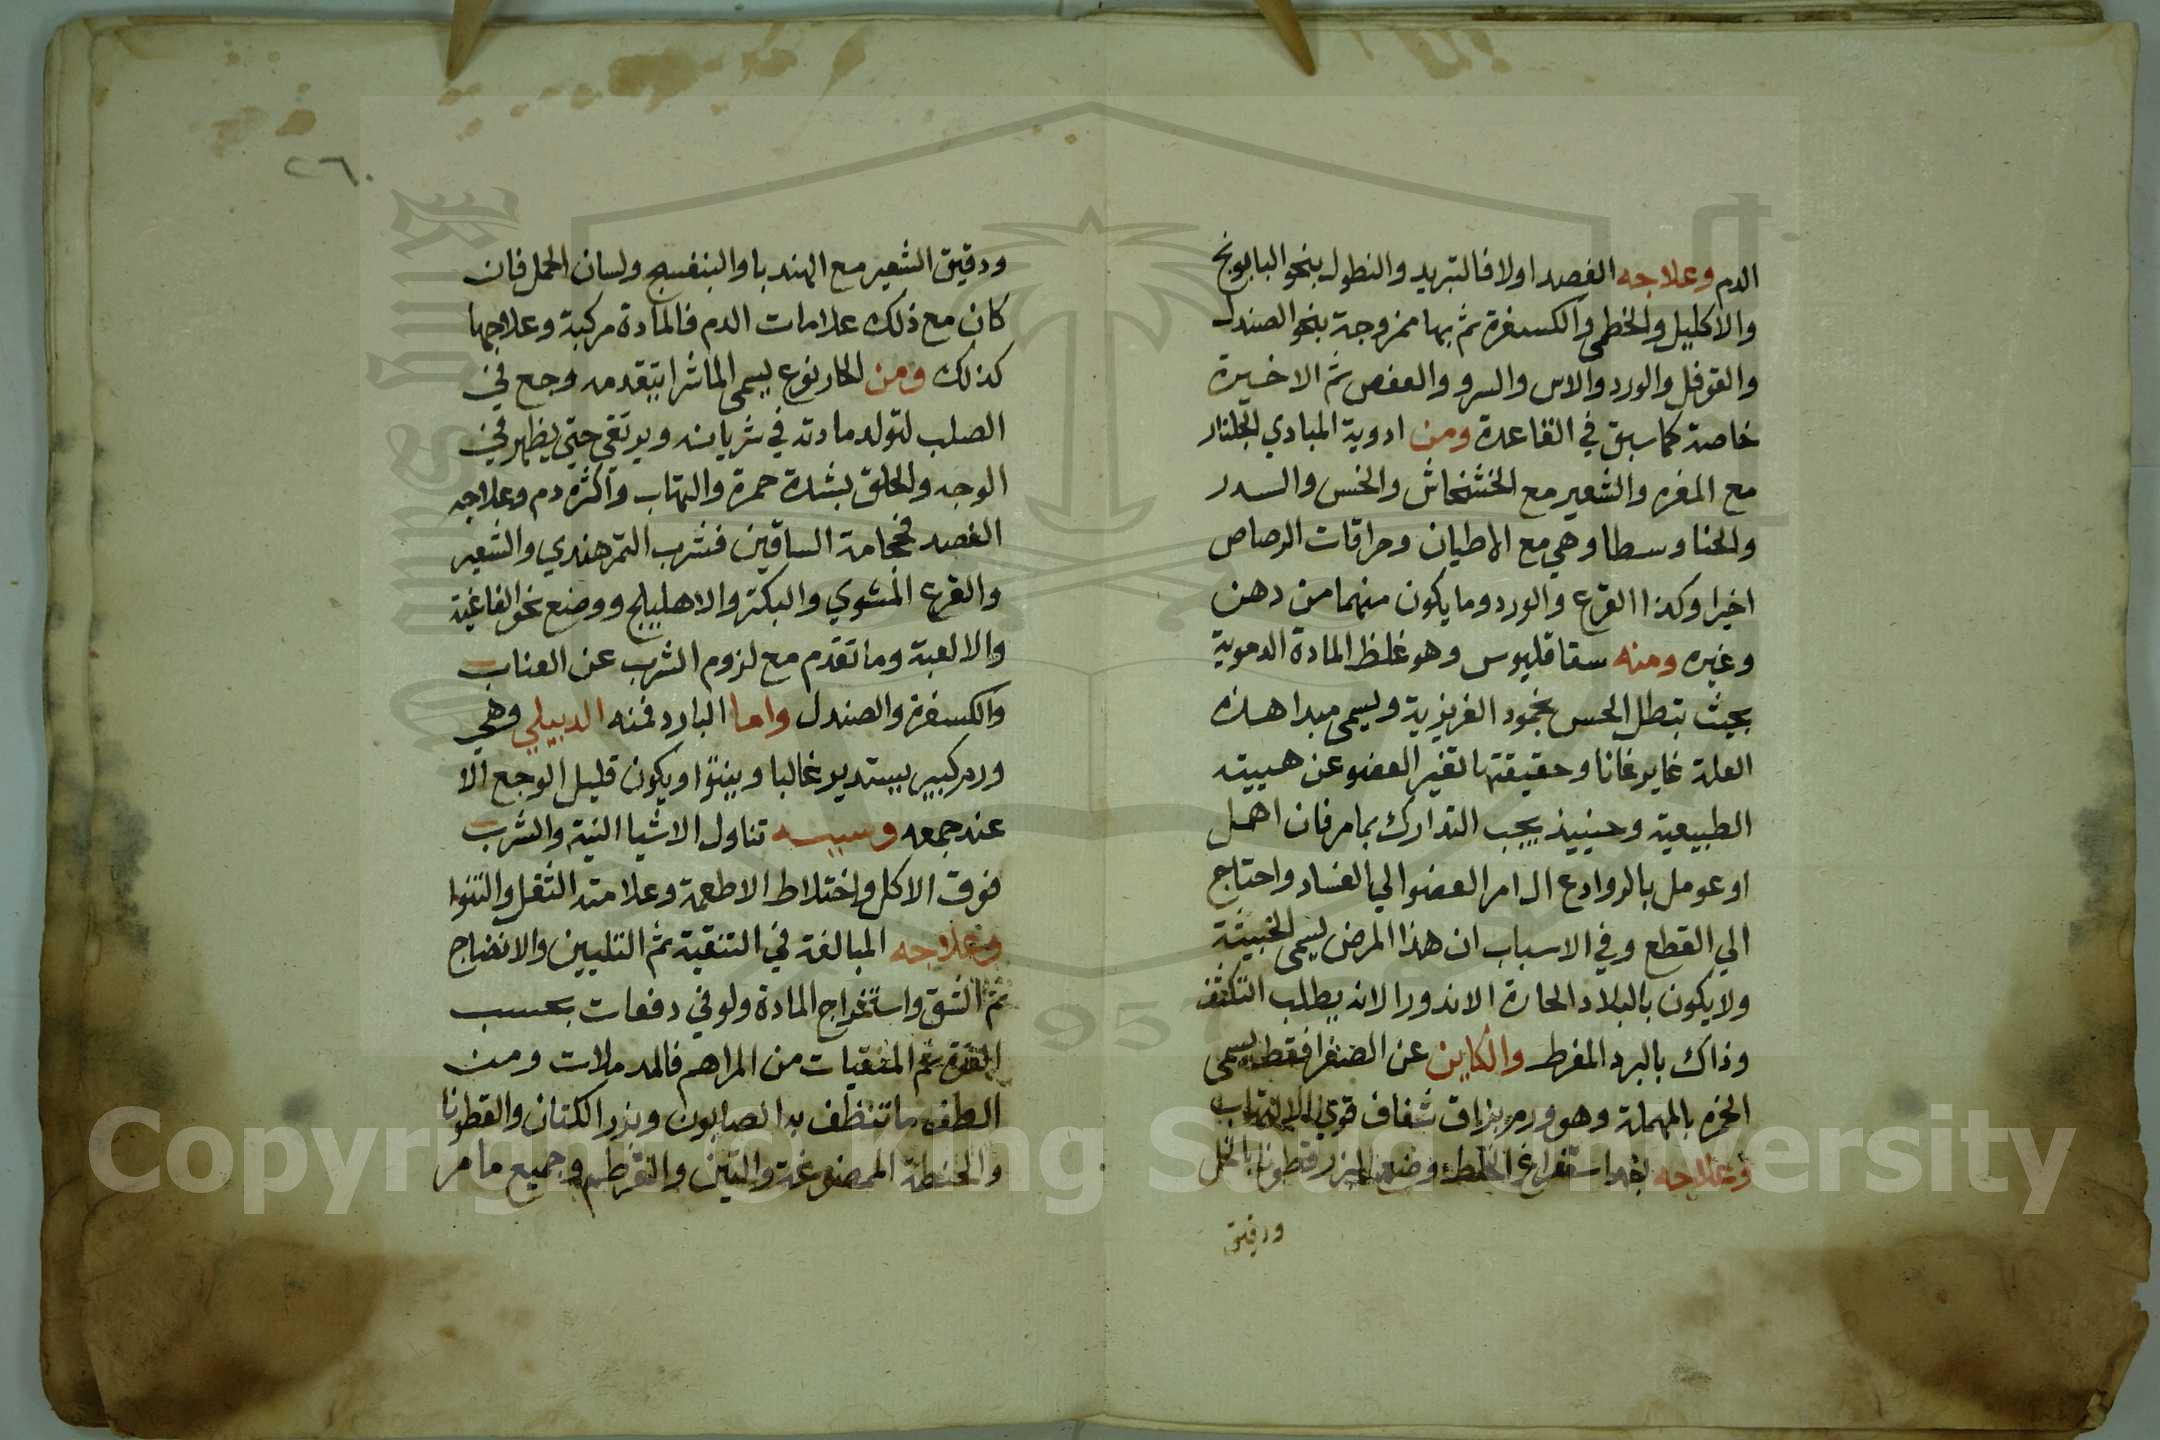 الدم وعلاجه الفصد اولا فالتبريد والنطول بنحو البابونج
والاكليل والخطمي والكسفرة ثم بها ممزوجة بنحو الصندل
والفوفل والورد والاس والسرو والعفص ثم الاخيرة
خاصة كما سبق في القاعدة ومن ادوية المبادي الجلنار
مع المغره والشعير مع الخشخاش والخس والسدر
والحنا وسطا وهي مع الاطيان وحراقات الرصاص
اخيرا وكذا القرع والورد وما يكون منهما من دهن
وغيره ومنه سقاقليوس وهو غلظ المادة الدموية
بحيث يتطل الحس بخمود الغريزية ويسمى مبدا هذه
العلة غايرغانا وحقيقتها تغير العضو عن هييته
الطبيعية وحينيذ يجب التدارك بما مر فان اهمل
او عومل بالروادع ال امر العضو الي الفساد واحتاج
الي القطع وفي الاسباب ان هذا المرض يسمى الخبيثة
ولا يكون بالبلاد الحارة الا ندورا لانه يطلب التكثف
وذاك بالبرد المفرط والكاين عن الصفرا فقط يسمى
الخزم بالمهملة وهو ورم براق شفاف قوي الالتهاب
وعلاجه بعد استفراغ الخلط وضع البزر قطونا بالخل
ودقيق
٢٦٠
ودقيق الشعير مع الهندبا والبنفسج ولسان الحمل فان
كان مع ذلك علامات الدم فالمادة مركبة وعلاجها
كذلك ومن الحار نوع يسمى الماشرا يتقدمه وجع في
الصلب لتولد مادته في شريانه ويرتقي حتي يظهر في
الوجه والحلق بشدة حمرة والتهاب واكثره دم وعلاجه
الفصد فحجامة الساقين فشرب التمر هندي والشعير
والقرع المشوي والبكتر والاهليلج ووضع نحو الفاغية
والالعبة وما تقدم مع لزوم الشرب عن العناب
والكسفرة والصندل واما البارد فمنه الدبيلي وهي
ورم كبير يستدير غالبا وينتوا ويكون قليل الوجع الا
عند جمعه وسببه تناول الاشيا النية والشرب
فوق الاكل واختلاط الاطعمة وعلامته الثقل والنتوا
وعلاجه المبالغة في التنقية ثم التليين والانضاج
ثم الشق واستخراج المادة ولو في دفعات بحسب
القوة ثم المنقيات من المراهم فالمدملات ومن
الطف ما تنظف به الصابون وبزر الكتان والقطونا
والحنطة الممضوغة والتين والقرطم وجميع ما مر
Copyright © King Saud University
957